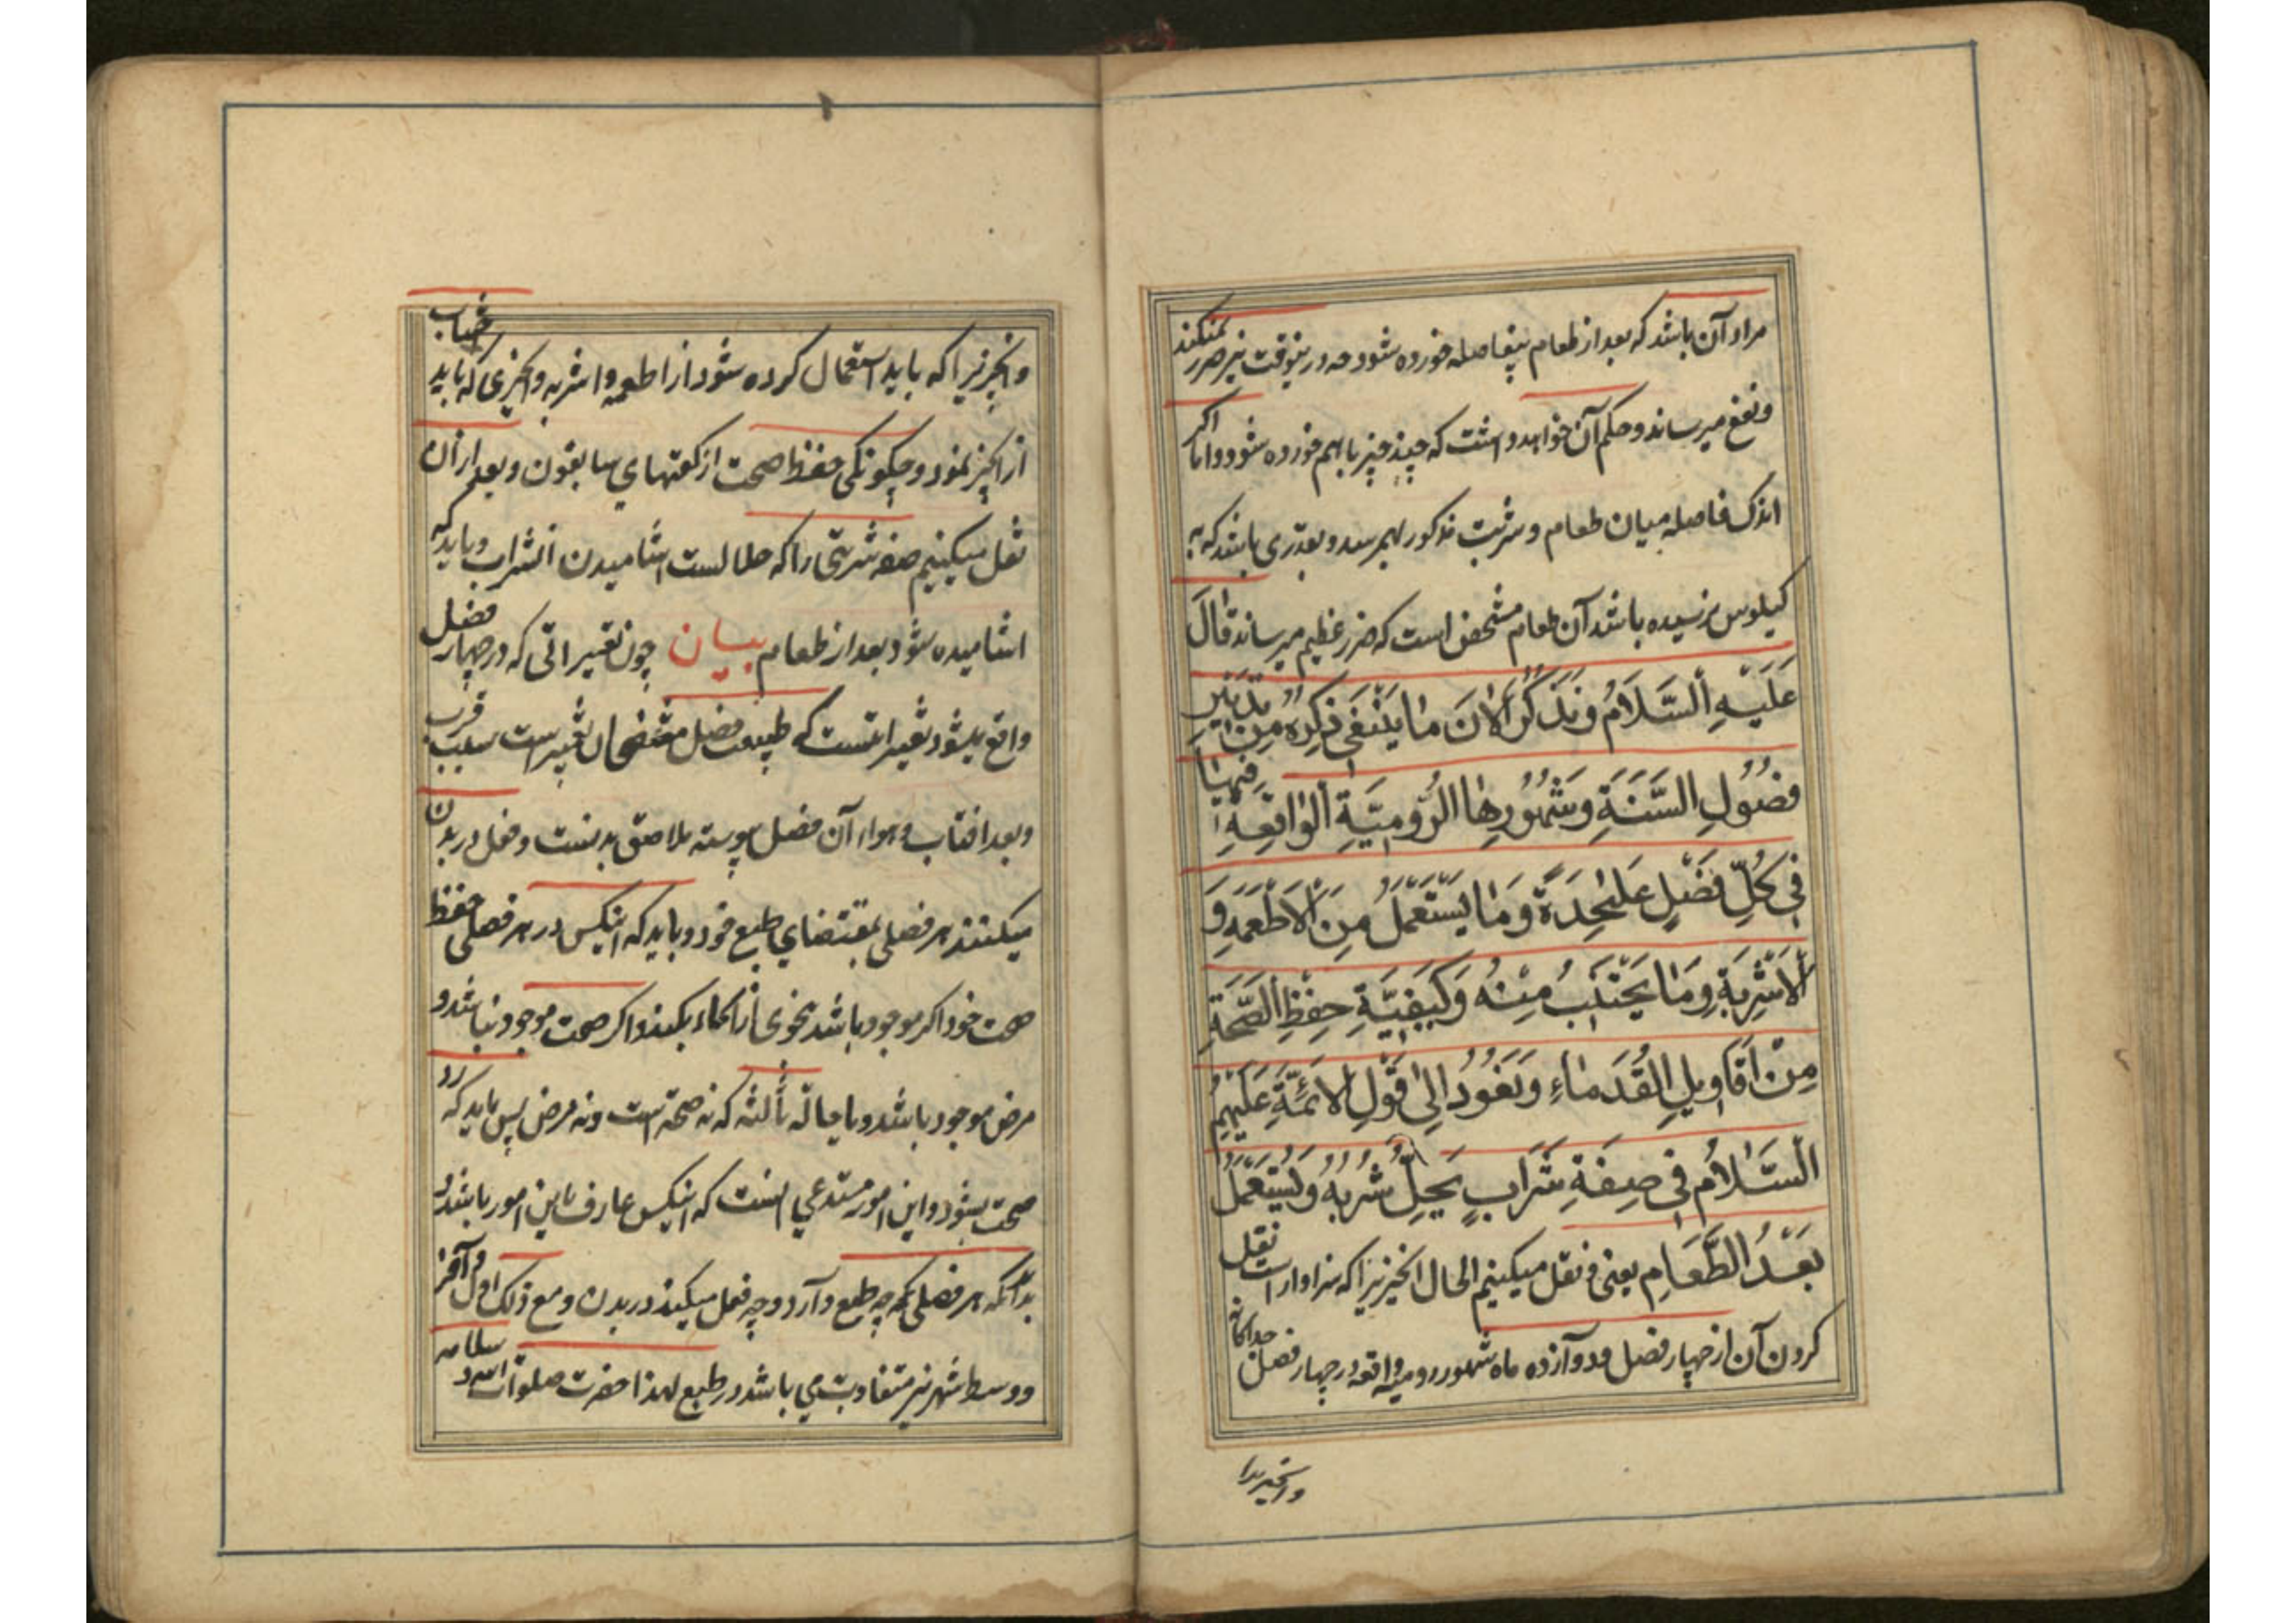 مراد آن باشد که بعد از طعام بیفاصله خورده شود چه درینوقت نیز ضرر نمیکند
و نفع میرساند و حکم آن خواهد داشت که چند چیز با هم خورده شود و اما اگر
اندک فاصله میان طعام و شربت مذکور بهمرسد و بقدری باشد که به
کیلوس نرسیده باشد آن طعام مشخص است که ضرر عظیم میرساند قَالَ
عَلَيْهِ اَلسَّلَامُ وَنَذْكُرُ الْاٰنَ مٰا يَنْبَغى ذِكْرُهُ مِنْ تَدْبيرِ
فُصُولِ السَّنَةِ وَشُهُورِهَا الرُّومِيَّةِ الْوٰاقِعَةِ فيهٰا
فى كُلِّ فَصْلٍ عَلٰيحِدَةٍ وَمٰا يُسْتَعْمَلُ مِنَ الْاَطْعَمَةِ وَ
الْاَشْرِبَةِ وَمٰا يُجْتَنَبُ مِنْهُ وَكَيْفِيَّةِ حِفْظِ الصِّحَّةِ
مِنْ اَقٰاويلِ الْقُدَمٰاءِ وَنَعُودُ اِلىٰ قَوْلِ الْاَئِمَّةِ عَلَيْهِمُ
السَّلٰامُ فى صِفَةِ شَرٰابٍ يَحِلُّ شُرْبُهُ وَيُسْتَعْمَلُ
بَعْدَ الطَّعٰامِ یعنی و نقل میکنیم الحال انچیزیرا که سزاوار است نقل
کردن آن از چهار فصل و دوآزده ماه شهور رومیه واقعه در چهار فصل جداگانه
وانچیزیرا
وانچیزیرا که باید استعمال کرده شود از اطعمه و اشربه و انچیزی که باید اجتناب
از انچیز نمود و چکونکی حفظ صحت از کفتهای سابقون و بعد از آن
نقل میکنیم صفه شربتی را که حلالست اشامیدن انشراب و باید که
اشامیده شود بعد از طعام بیان چون تغییراتی که در چهار فصل
واقع میشود تغییراتست که طبیعت فصل مقتضی ان تغییر است بسبب قرب
و بعد افتاب و هواء آن فصل پیوسته ملاصق بدنست و فعل در بدن
میکنند هر فصلی بمقتضای طبع خود و باید که انیکس در هر فصلی حفظ
صحت خود اکر موجود باشد بنحوی از انحاء بکند و اکر صحت موجود نباشد و
مرض موجود باشد و یا حالة ثالثه که نه صحة است و نه مرض پس باید که رد
صحت بشود و این امور مستدعی انست که انیکس عارف باین امور باشد و
بدانکه هر فصلی که چه طبع دآرد و چه فعل میکند در بدن و مع ذلک اول و آخر
و وسط شهر نیز متفاوت می باشد در طبع لهذا حضرت صلوات الله و سلامه